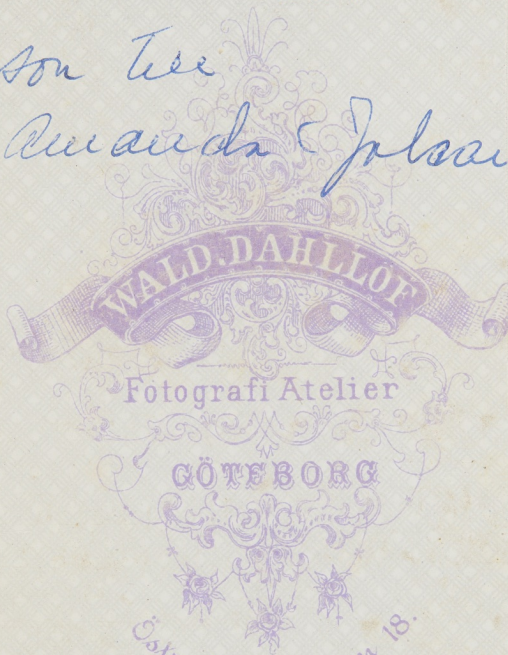 son till
Amanda Johan
WALD. DAHLLÖF
Fotografi Atelier
GÖTEBORG
18.